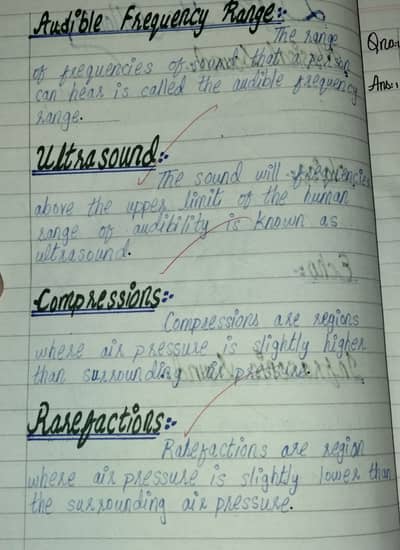 Audible Frequency Range:-
The range
of frequencies of sound that a person
can hear is called the audible frequency
range.
Ultrasound:-
The sound will frequencies
above the upper limit of the human
range of audibility is known as
ultrasound.
Compressions:-
Compressions are regions
where air pressure is slightly higher
than surrounding air pressure.
Rarefactions:-
Rarefactions are region
where air pressure is slightly lower than
the surrounding air pressure.
Qno:
Ans: